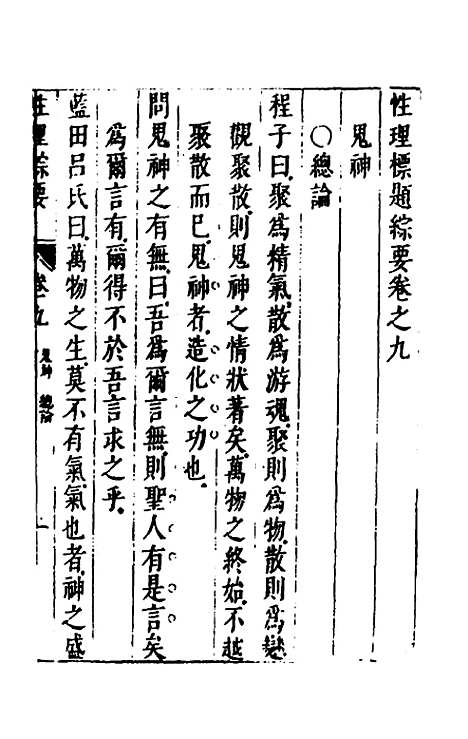 性理標題綜要卷之九
鬼神
○總論
程子曰聚爲精氣散爲游魂聚則爲物散則爲變
觀聚散則鬼神之情狀著矣萬物之終始不越
聚散而已鬼神者造化之功也
問鬼神之有無曰吾爲爾言無則聖人有是言矣
爲爾言有爾得不於吾言求之乎
藍田呂氏曰萬物之生莫不有氣氣也者神之盛
性理綜要 卷九 鬼神 總論 一